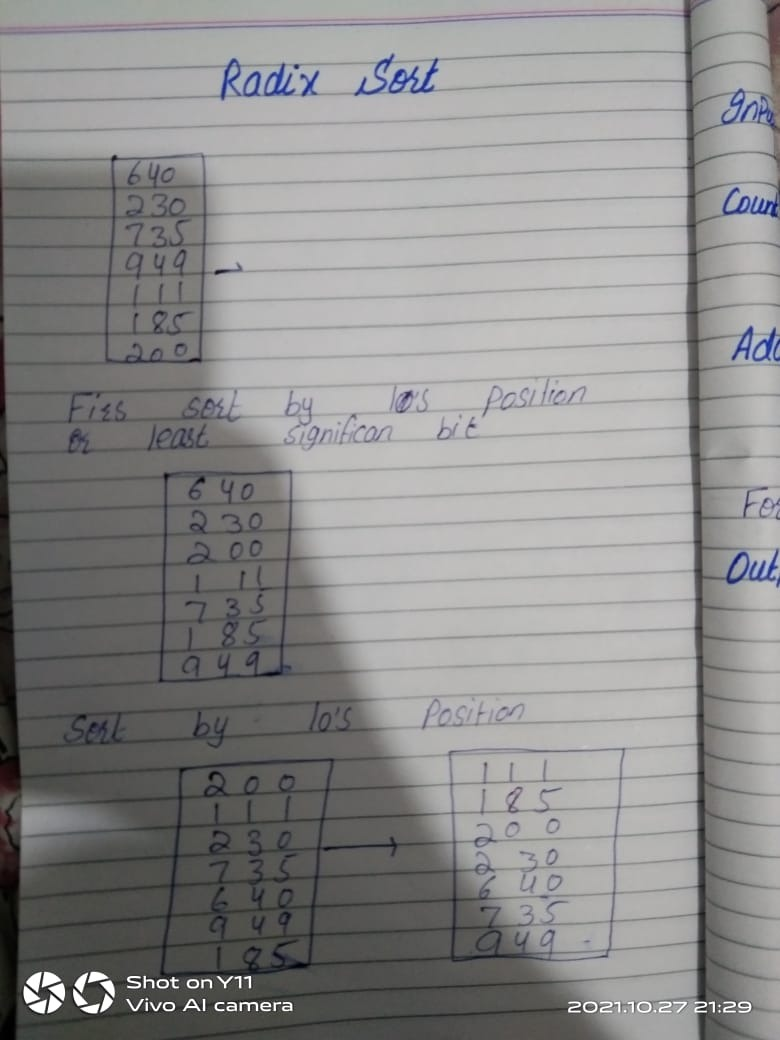 Radix Sort
640
230
735
949
111
185
200
Firs sort by 10's Position
or least significan bit
6 40
2 30
2 00
1 11
7 35
1 85
9 49
Sort by 10's Position
2 0 0
1 1 1
2 3 0
7 3 5
6 4 0
9 4 9
1 85
1 1 1
1 8 5
2 0 0
2 30
6 40
7 35
9 4 9
Count
For
Shot on Y11
Vivo AI camera
2021.10.27 21:29